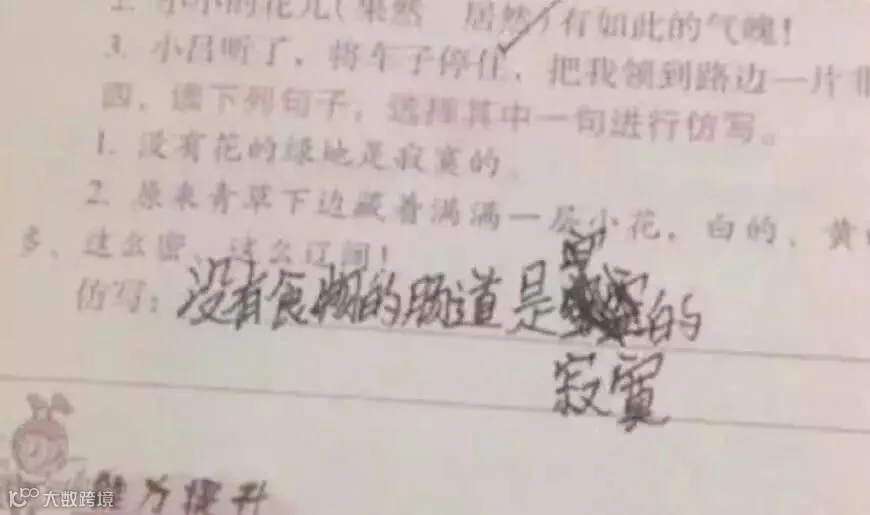 2. 小小的花儿(果然 居然)有如此的气魄!
3. 小吕听了,将车子停住,把我领到路边一片
四、读下列句子,选择其中一句进行仿写。
1. 没有花的绿地是寂寞的。
2. 原来青草下边藏着满满一层小花,白的、黄
多、这么密、这么辽阔!
仿写:没有食物的肠道是 的
寂寞
能力提升
大数跨境